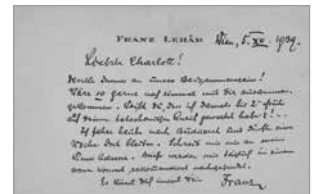 FRANZ LEHÁR Wien, 5. XII. 1939.
Liebste Charlott!
Denke immer an unser Beisammensein!
Wäre so gerne noch einmal mit Dir zusammen-
gekommen. Weißt Du, daß ich damals bis 2 früh
auf Deinen telefonischen Anruf gewartet habe? –
Ich fahre heute nach Budapest und dürfte eine
Woche dort bleiben. Schreib mir nur an meine
Adresse. Briefe werden mir täglich in einem
nachgesendet.
Es küsst Dich innigst Dein
Franz